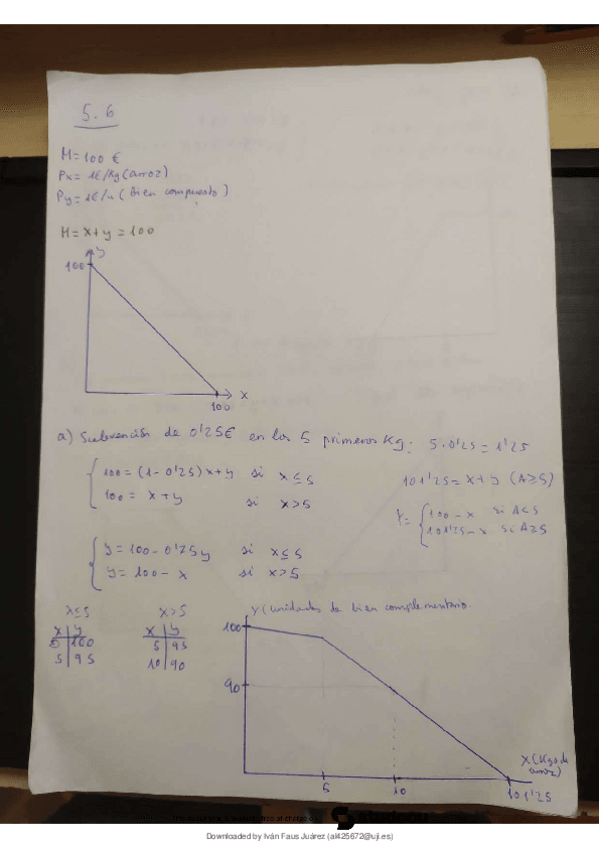 5.6
M=100 €
Px= 1€/Kg (arroz)
Py= 1€/u (bien compuesto)
M= x+y = 100
y
100
x
100
a) Subvención de 0'25€ en los 5 primeros Kg: 5·0'25 = 1'25
100 = (1-0'25)x+y si x≤5
100 = x+y si x>5
101'25 = x+y (A≥5)
Y= 100-x si A<5
101'25-x si A≥5
y=100-0'25y si x≤5
y=100-x si x>5
x≤5 x>5
x y x y
5 100 5 95
5 95 10 90
Y (unidades de bien complementario.
100
90
X (Kgs de arroz)
5 10 101'25
Downloaded by Iván Faus Juárez (al425672@uji.es)